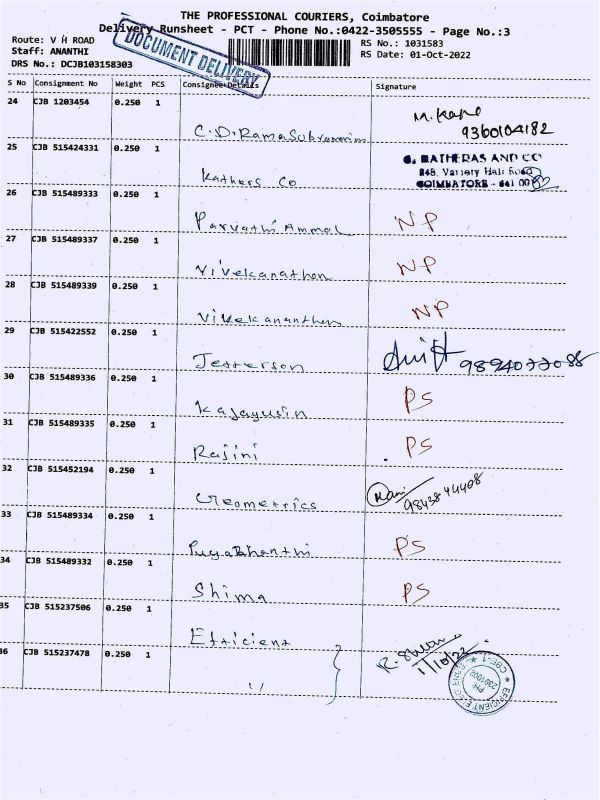 THE PROFESSIONAL COURIERS, Coimbatore
Delivery Runsheet - PCT - Phone No.:0422-3505555 - Page No.:3
Route: V H ROAD
RS No.: 1031583
Staff: ANANTHI
RS Date: 01-Oct-2022
DRS No.: DCJB103158303
DOCUMENT DELIVERY
S No Consignment No Weight PCS Consignee Details Signature
24 CJB 1203454 0.250 1
M. Kano
C.D. RamaSubramanim 9360104182
25 CJB 515424331 0.250 1
Kathers Co
G. RATHERAS AND CO
848, Variety Hall Road
COIMBATORE - 641 00
26 CJB 515489333 0.250 1
Parvathi Ammal NP
27 CJB 515489337 0.250 1
Vivekanathan NP
28 CJB 515489339 0.250 1
Vivekananthan NP
29 CJB 515422552 0.250 1
Jefferson 9894077088
30 CJB 515489336 0.250 1
PS
31 CJB 515489335 0.250 1
Rajini PS
32 CJB 515452194 0.250 1
Geometrics Mani 9843844408
33 CJB 515489334 0.250 1
PS
34 CJB 515489332 0.250 1
Shima PS
35 CJB 515237506 0.250 1
Efficient
36 CJB 515237478 0.250 1
" 1/10/22
CBE-1
PH: 2301002